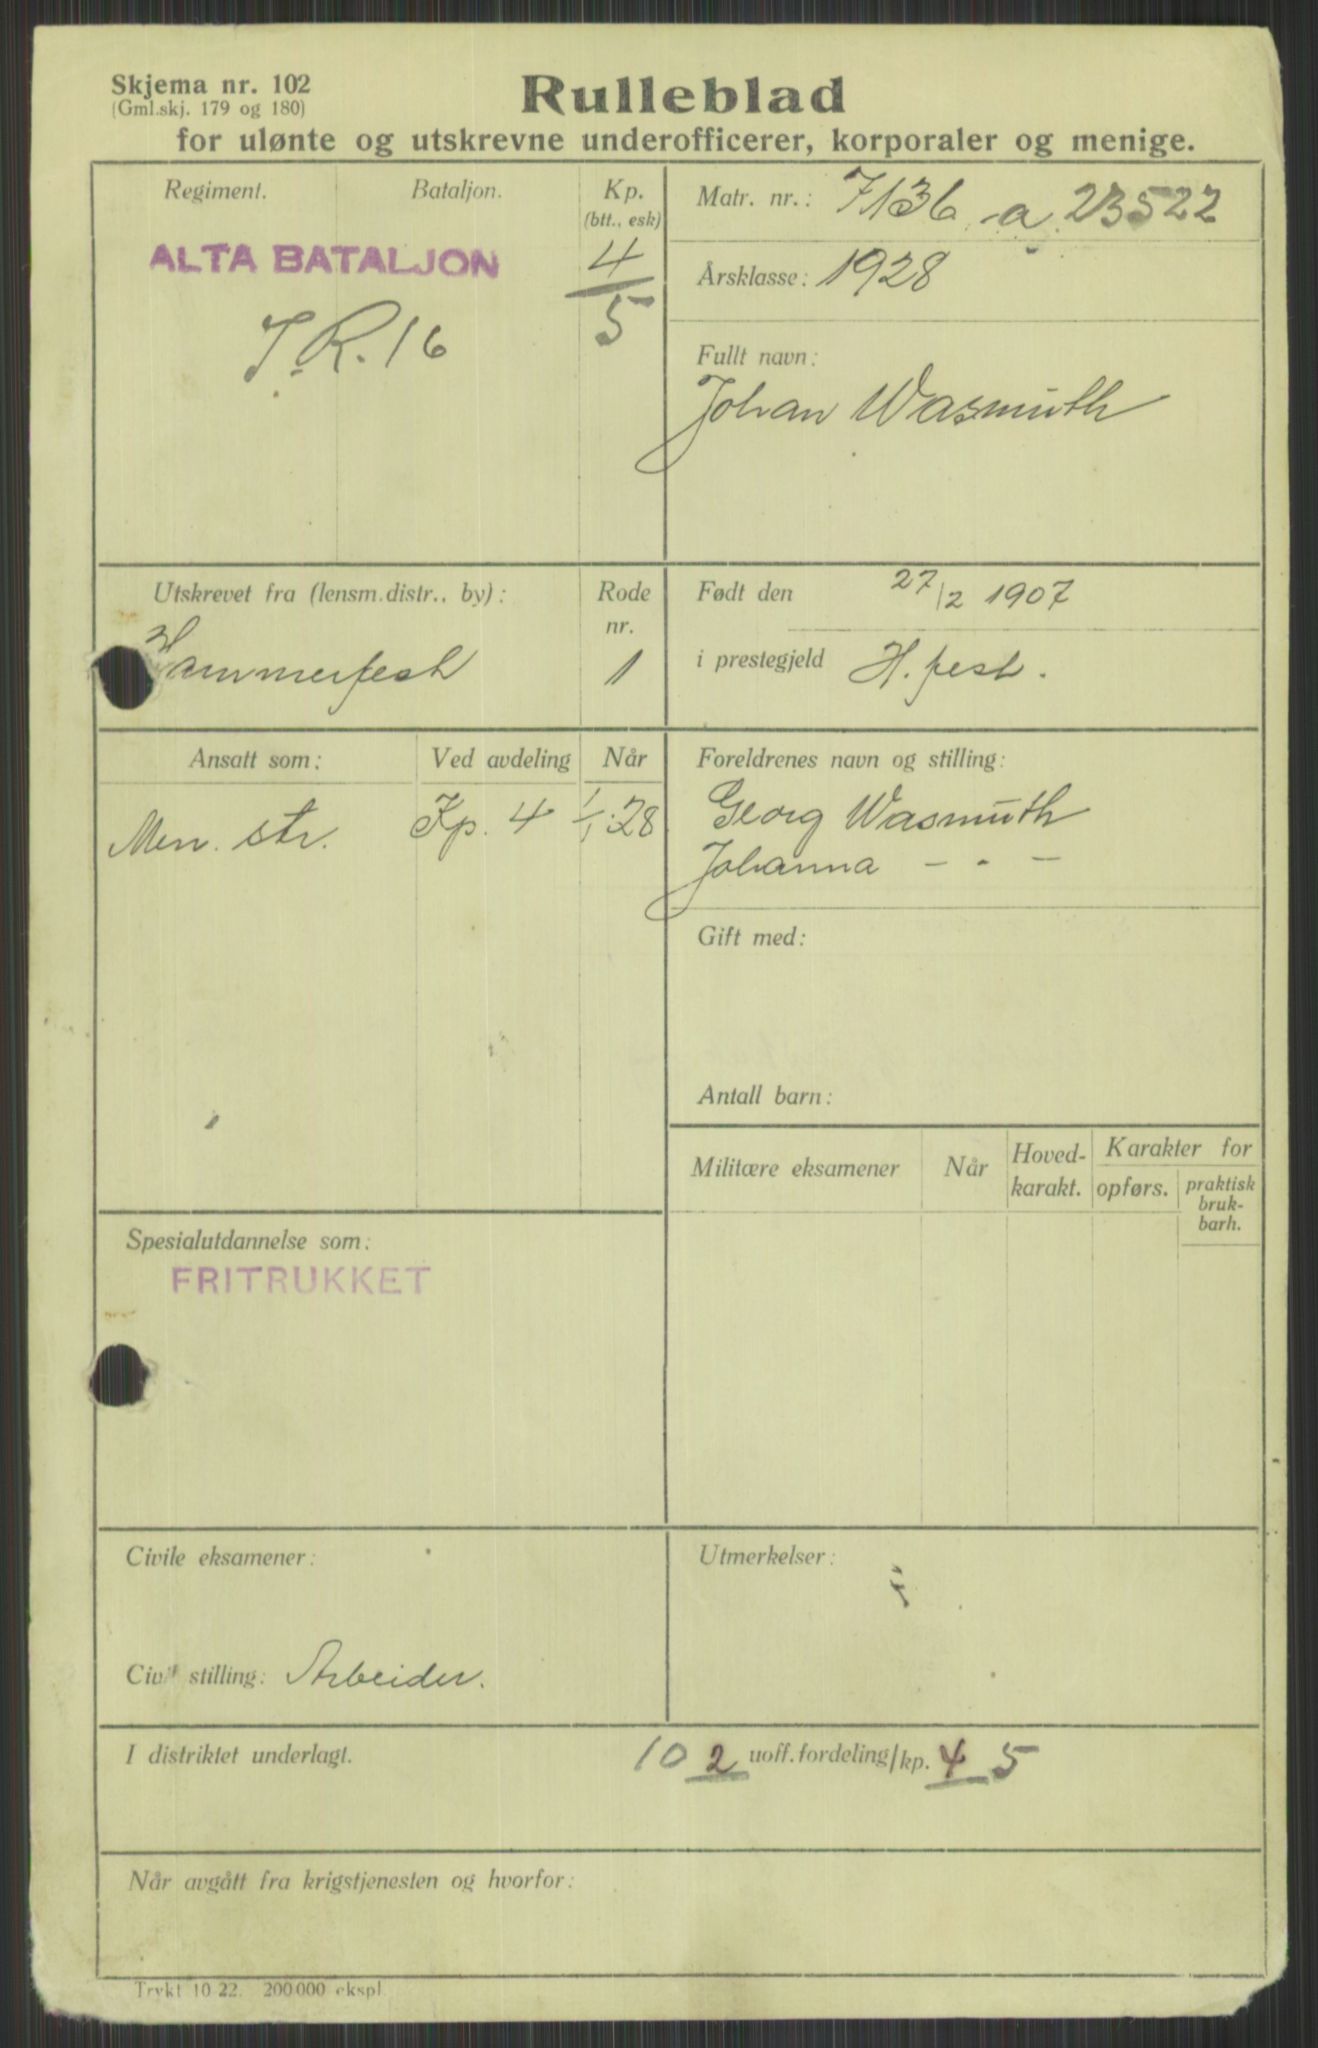 Skjema nr. 102
(Gml.skj. 179 og 180)
Rulleblad
for ulønte og utskrevne underofficerer, korporaler og menige.
Regiment.
Bataljon.
Kp.
(btt., esk)
ALTA BATALJON
4
5
J.R. 16
Matr. nr.: 7136 a 23522
Årsklasse: 1928
Fullt navn:
Johan Wasmuth
Utskrevet fra (lensm.distr., by):
Hammerfest
Rode
nr.
1
Født den 27/2 1907
i prestegjeld H.fest.
Ansatt som:
Ved avdeling
Når
Men. str. Kp. 4 1/1 28
Foreldrenes navn og stilling:
Georg Wasmuth
Johanna — " —
Gift med:
Antall barn:
Militære eksamener
Når
Hoved-
karakt.
Karakter for
opførs.
praktisk
bruk-
barh.
Spesialutdannelse som:
FRITRUKKET
Civile eksamener:
Civil stilling: Arbeider.
Utmerkelser:
I distriktet underlagt. 10 2 uoff.fordeling/kp. 4 5
Når avgått fra krigstjenesten og hvorfor:
Trykt 10 22. 200 000 ekspl